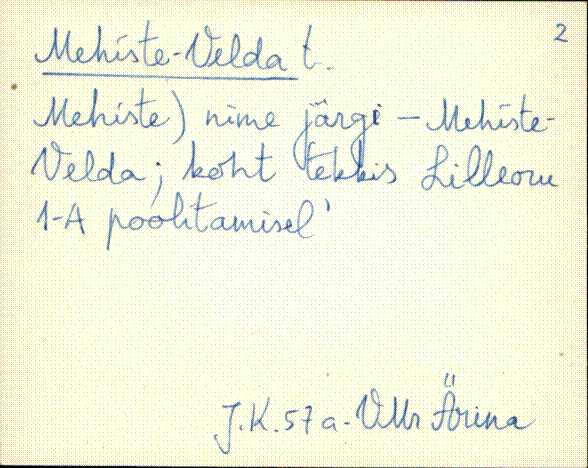 2
Mehiste-Velda t.
Mehiste) nime järgi – Mehiste-
Velda; koht tekkis Lilleoru
1-A poolitamisel'
J.K. 57 a. VMr Ärina